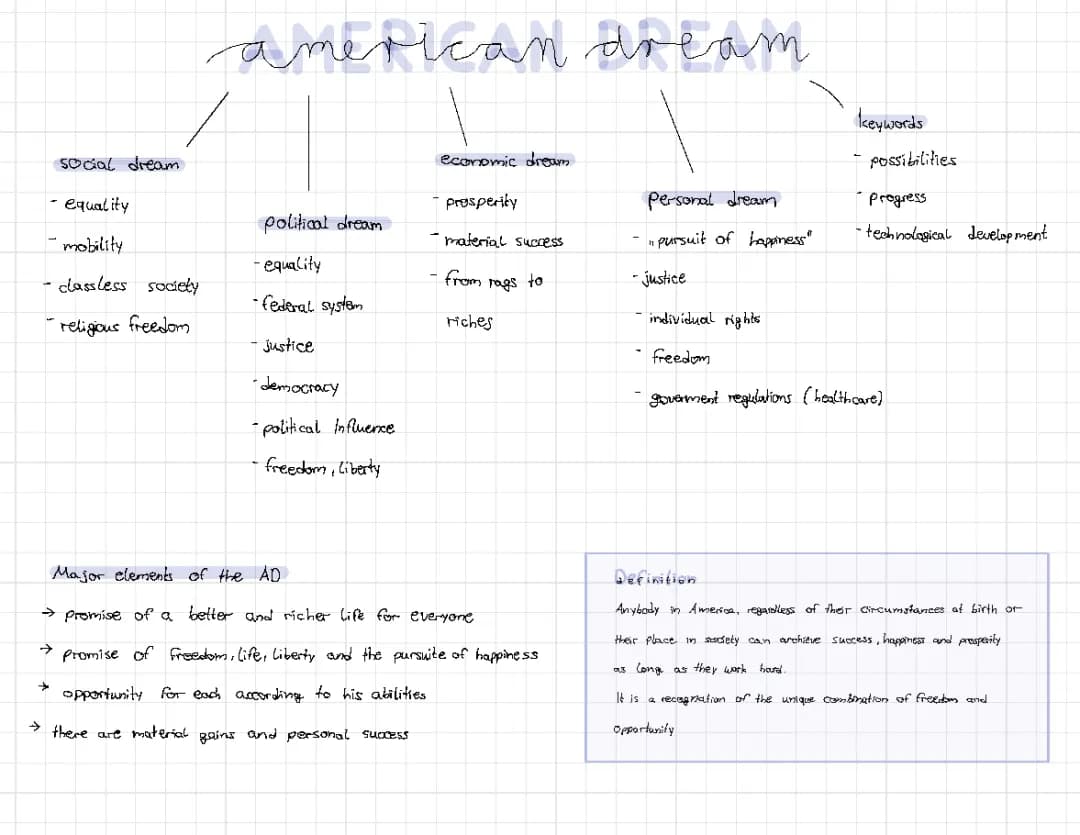 AMERICAN DREAM
american dream
social dream
- equality
- mobility
- classless society
- religious freedom
political dream
- equality
- federal system
- justice
- democracy
- political Influence
- freedom, liberty
economic dream
- prosperity
- material success
- from rags to
riches
personal dream
- „pursuit of happiness"
- justice
- individual rights
- freedom
- goverment regulations (healthcare)
keywords
- possibilities
- progress
- technological development
Major elements of the AD
→ promise of a better and richer life for everyone
→ promise of freedom, life, liberty and the pursuite of happiness
→ opportunity for each according to his abilities
→ there are material gains and personal success
Definition
Anybody in America, regardless of their circumstances of birth or
their place in society can archieve success, happiness and prosperity
as long as they work hard.
It is a recognation of the unique combination of freedom and
opportunity